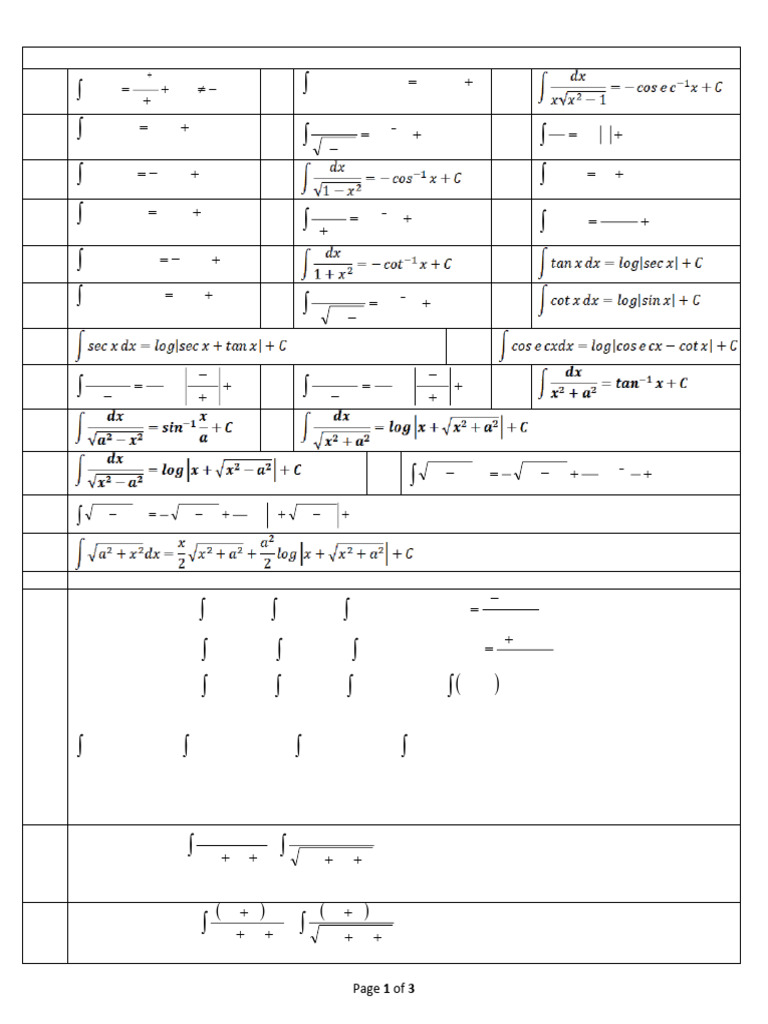 ∫ = + / + + ≠ −
∫ = +
∫ dx / x√x² − 1 = −cos e c⁻¹x + C
∫ = +
∫ / √ − = − +
∫ — = | | +
∫ = − +
∫ dx / √1 − x² = −cos⁻¹ x + C
∫ = +
∫ = +
∫ / + = − +
∫ = — +
∫ = − +
∫ dx / 1 + x² = −cot⁻¹ x + C
∫ tan x dx = log|sec x| + C
∫ = +
∫ / √ − = − +
∫ cot x dx = log|sin x| + C
∫ sec x dx = log|sec x + tan x| + C
∫ cos e cxdx = log|cos e cx − cot x| + C
∫ / − = — | − / + | +
∫ / − = — | − / + | +
∫ dx / x² + a² = tan⁻¹ x + C
∫ dx / √a² − x² = sin⁻¹ x/a + C
∫ dx / √x² + a² = log|x + √x² + a²| + C
∫ dx / √x² − a² = log|x + √x² − a²| + C
∫ √ − = − √ − + — − — +
∫ √ − = − √ − + — | + √ − | +
∫ √a² + x² dx = x/2 √x² + a² + a²/2 log|x + √x² + a²| + C
∫ ∫ ∫ = − /
∫ ∫ ∫ = + /
∫ ∫ ∫ ∫( )
∫ ∫ ∫ ∫
∫ / + + ∫ / √ + +
∫ ( + ) / + + ∫ ( + ) / √ + +
Page 1 of 3